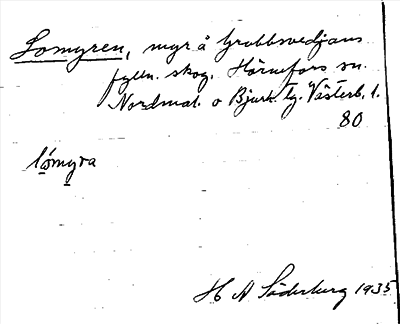 Lomyren, myr å Grubbsvedjans
fylln. skog, Hörnefors sn.
Nordmal. o Bjurh. tg. Västerb. l.
80
lómyra
H A Söderberg 1935